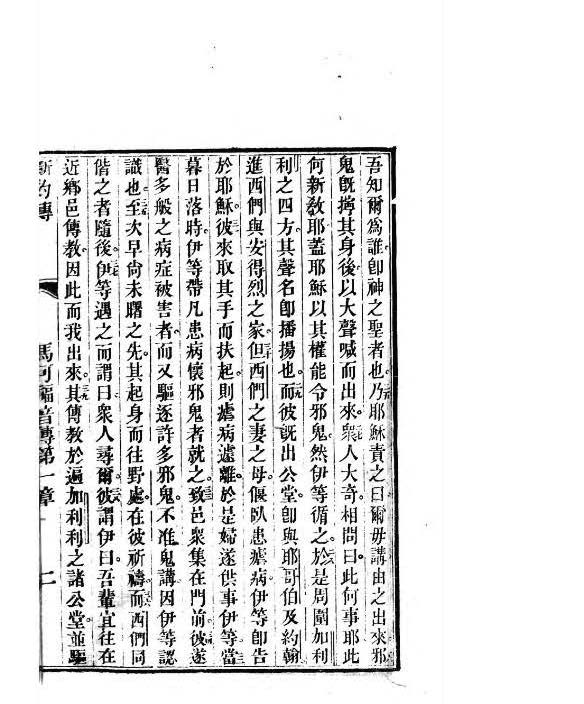 吾知爾爲誰卽神之聖者也乃耶穌責之曰爾毋講由之出來邪
鬼旣擰其身後以大聲喊而出來衆人大奇相問曰此何事耶此
何新教耶葢耶穌以其權能令邪鬼然伊等循之於是周圍加利
利之四方其聲名卽播揚也而彼旣出公堂卽與耶哥伯及約翰
進西們與安得烈之家但西們之妻之母偃臥患瘧病伊等卽告
於耶穌彼來取其手而扶起則瘧病遠離於是婦遂供事伊等當
暮日落時伊等帶凡患病懷邪鬼者就之致邑衆集在門前彼遂
醫多般之病症被害者而又驅逐許多邪鬼不准鬼講因伊等認
識也至次早尙未曙之先其起身而往野處在彼祈禱而西們同
偕之者隨後伊等遇之而謂曰衆人尋爾彼謂伊曰吾輩宜往在
近鄉邑傳教因此而我出來其傳教於遍加利利之諸公堂並驅
新約傳 馬可福音傳第一章 二